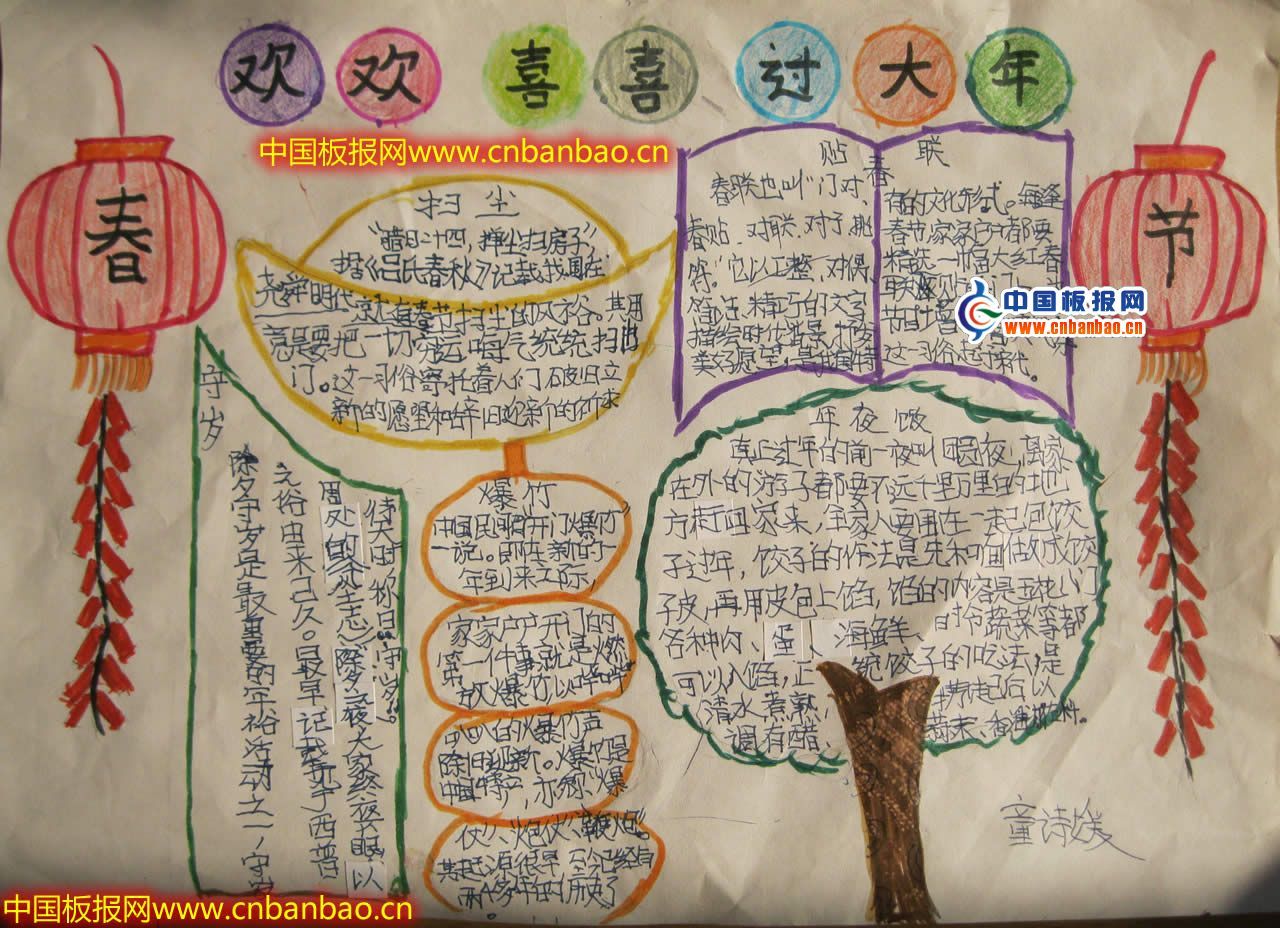 欢欢喜喜过大年
春
节
中国板报网www.cnbanbao.cn
扫尘
“腊月二十四,掸尘扫房子”,
据《吕氏春秋》记载,我国在
尧舜时代 春节扫尘的风俗。其用
意是要把一切 运 晦气统统扫出
门。这一习俗寄托着人们破旧立
新的愿望和辞旧迎新的祈求
贴春联
春联也叫“门对、
春贴、对联、对子、桃
符”。它以工整、对偶
简洁、精巧的文字
描绘时代背景,抒发
美好愿望,是我国特
有的文化形式。每逢
春节,家家户户都要
精选一幅大红春
联
节日增
这一习俗起于宋代。
中国板报网
www.cnbanbao.cn
守岁
除夕守岁是最重要的年俗活动之一,守岁
之俗由来已久。最早记载于西晋
周处的《风土志》:除夕之夜大家终夜不眠,以
待天明,称曰“守岁”。
爆竹
中国民间有“开门爆竹”
一说。即在新的一
年到来之际,
家家户户开门的
第一件事就是燃
放爆竹,以哔哔
叭叭的爆竹声
除旧迎新。爆竹是
中国特产,亦称“爆
仗”、“炮仗”、“鞭炮”。
其起源很早,至今已经有
两千多年的历史了
。
年夜饭
真正过年的前一夜叫团圆夜,离家
在外的游子都要不远千里万里的地
方赶回家来,全家人要围在一起包饺
子过年,饺子的作法是先和面做成饺
子皮,再用皮包上馅,馅的内容是五花八门
各种肉、蛋、海鲜、时令蔬菜等都
可以入馅,正统饺子的吃法,是
清水煮熟, 捞起后以
调有醋 蒜末、香油
童诗媛
中国板报网www.cnbanbao.cn